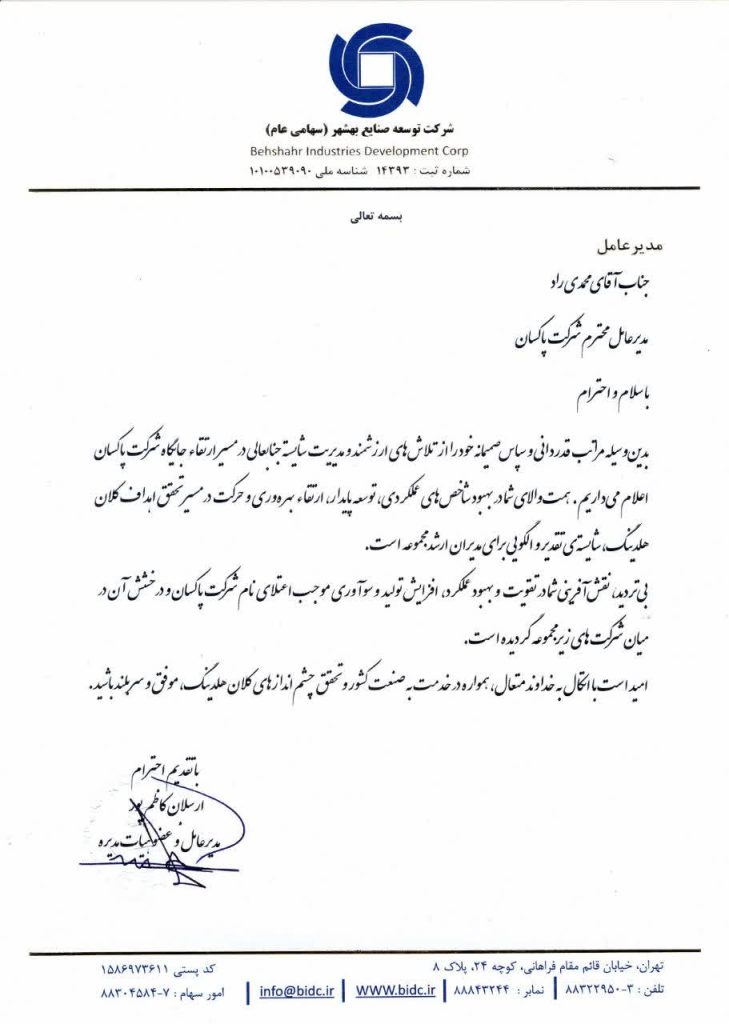 شرکت توسعه صنایع بهشهر (سهامی عام)
Behshahr Industries Development Corp
شماره ثبت : ۱۴۳۹۳ شناسه ملی ۱۰۱۰۰۵۳۹۰۹۰
بسمه تعالی
مدیر عامل
جناب آقای محمدی راد
مدیرعامل محترم شرکت پاکسان
با سلام و احترام
بدین وسیله مراتب قدردانی و سپاس صمیمانه خود را از تلاش های ارزشمند و مدیریت شایسته جنابعالی در مسیر ارتقاء جایگاه شرکت پاکسان
اعلام می داریم. همت والای شما در بهبود شاخص های عملکردی، توسعه پایدار، ارتقاء بهره وری و حرکت در مسیر تحقق اهداف کلان
هلدینگ، شایسته ی تقدیر و الگویی برای مدیران ارشد مجموعه است.
بی تردید، نقش آفرینی شما در تقویت و بهبود عملکرد، افزایش تولید و سودآوری موجب اعتلای نام شرکت پاکسان و درخشش آن در
میان شرکت های زیرمجموعه گردیده است.
امید است با اتکال به خداوند متعال، همواره در خدمت به صنعت کشور و تحقق چشم اندازهای کلان هلدینگ، موفق و سربلند باشید.
با تقدیم احترام
ارسلان کاظم پور
مدیرعامل و عضو هیات مدیره
تهران، خیابان قائم مقام فراهانی، کوچه ۲۴، پلاک ۸ کد پستی ۱۵۸۶۹۷۳۶۱۱
تلفن : ۳-۸۸۳۲۲۹۵۰ | نمابر : ۸۸۸۴۳۲۴۴ | WWW.bidc.ir | info@bidc.ir | امور سهام : ۷-۸۸۳۰۴۵۸۴